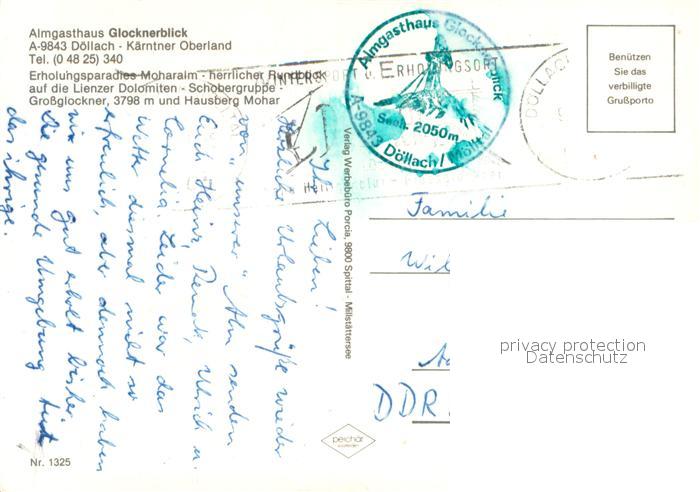 Almgasthaus Glocknerblick
A-9843 Döllach - Kärntner Oberland
Tel. (0 48 25) 340
Erholungsparadies Moharalm - herrlicher Rundblick
auf die Lienzer Dolomiten - Schobergruppe -
Großglockner, 3798 m und Hausberg Mohar
WINTERSPORT u. ERHOLUNGSORT
Almgasthaus Glocknerblick
A-9843 Döllach/Mölltal
Seeh. 2050m
DÖLLACH
Benützen
Sie das
verbilligte
Grußporto
Ihr Lieben!
Herzliche Urlaubsgrüße wieder
von "unserer" Alm senden
Euch Heinz, Ulrich u.
Cornelia. Leider war das
Wetter diesmal nicht so
erfreulich, aber dennoch haben
wir uns gut erholt bisher.
Die gesunde Umgebung tut
das ihrige.
Verlag Werbebüro Porcia, 9800 Spittal - Millstättersee
Familie
Wil
DDR
privacy protection
Datenschutz
perchar
Nr. 1325